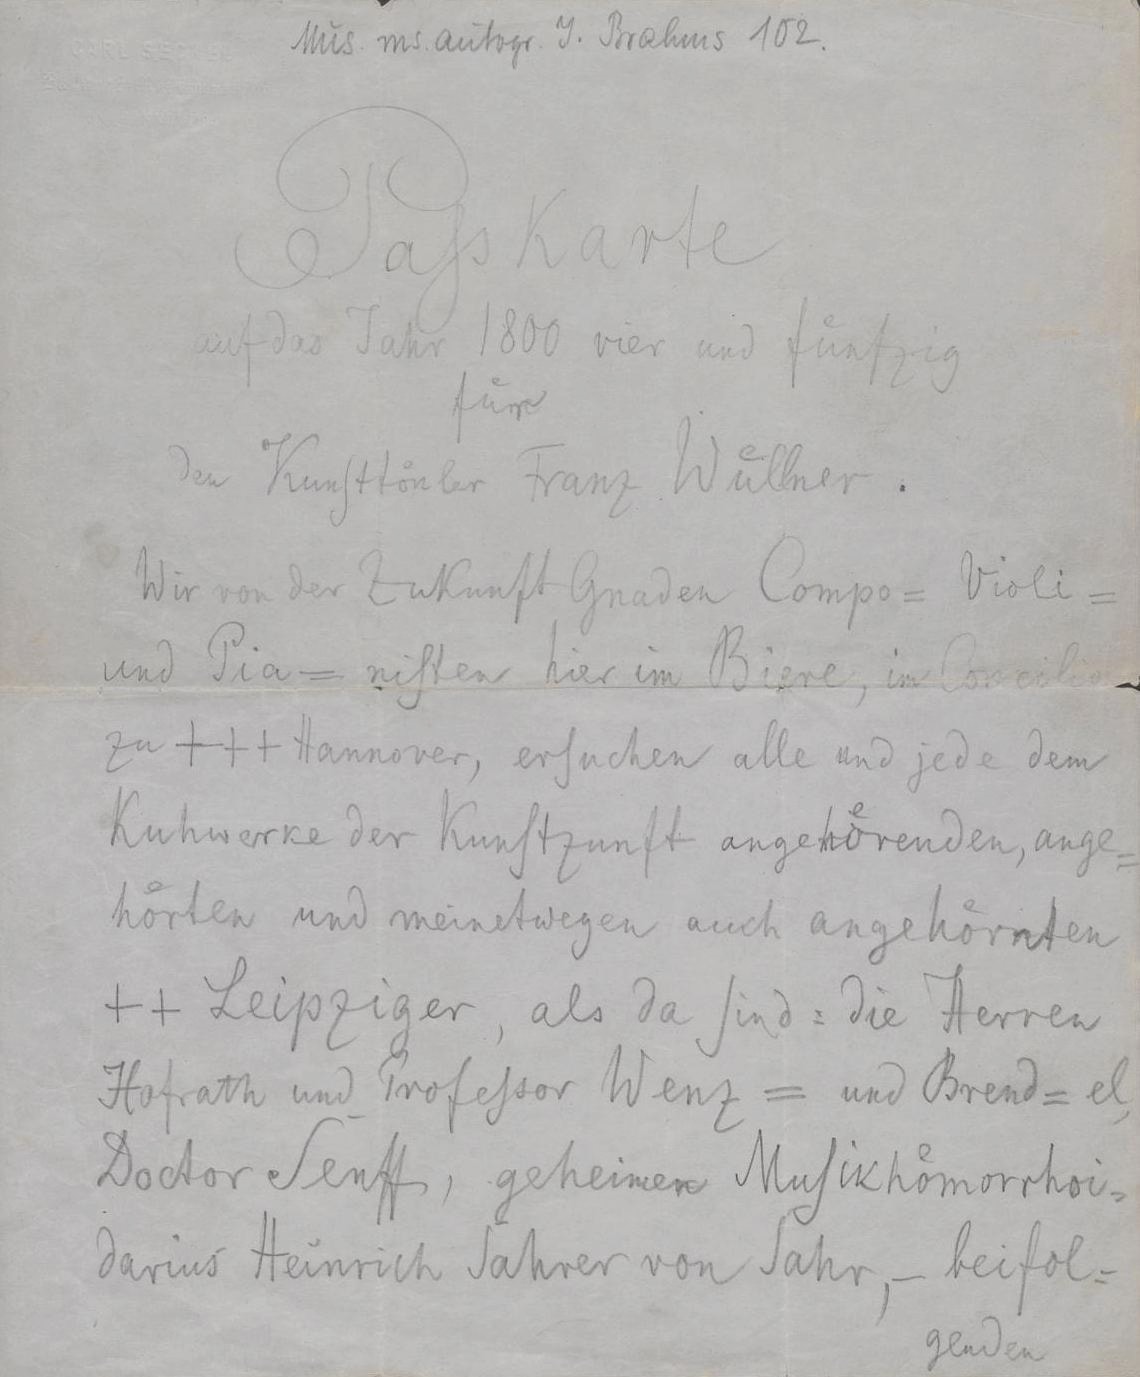 Mus. ms. autogr. J. Brahms 102.
Passkarte
auf das Jahr 1800 vier und fünfzig
für
den Kunsttönler Franz Wüllner.
Wir von der Zukunft Gnaden Compo= Violi=
und Pia= nisten hier im Biere, im Concilio
zu +++ Hannover, ersuchen alle und jede dem
Kuhwerke der Kunstzunft angehörenden, ange=
hörten und meinetwegen auch angehörnten
++ Leipziger, als da sind: die Herren
Hofrath und Professor Wenz = und Brend= el,
Doctor Senff, geheimen Musikhömorrhoi=
darius Heinrich Sahrer von Sahr, – beifol=
genden